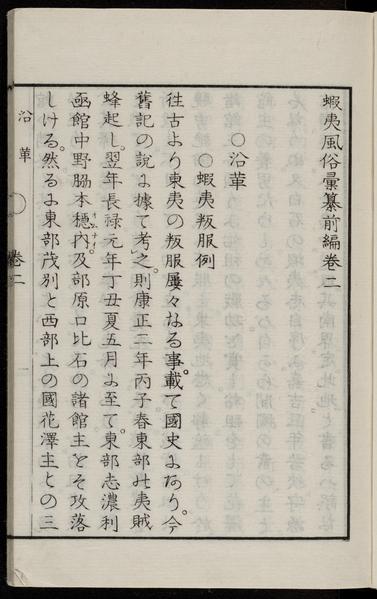 蝦夷風俗彙纂前編卷二
○沿革
○蝦夷叛服例
往古より東夷の叛服屢々なる事載て國史にあり。今
舊記の説に據て考ふ之則康正二年丙子春東部此夷賊
蜂起し。翌年長禄元年丁丑夏五月に至て。東部志濃利
凾館中野脇本穩内。及部原口比石の諸館主をそ攻落
しける。然るに東部茂別と西部上の國花澤主との三
オンナイ
沿革
卷二
一